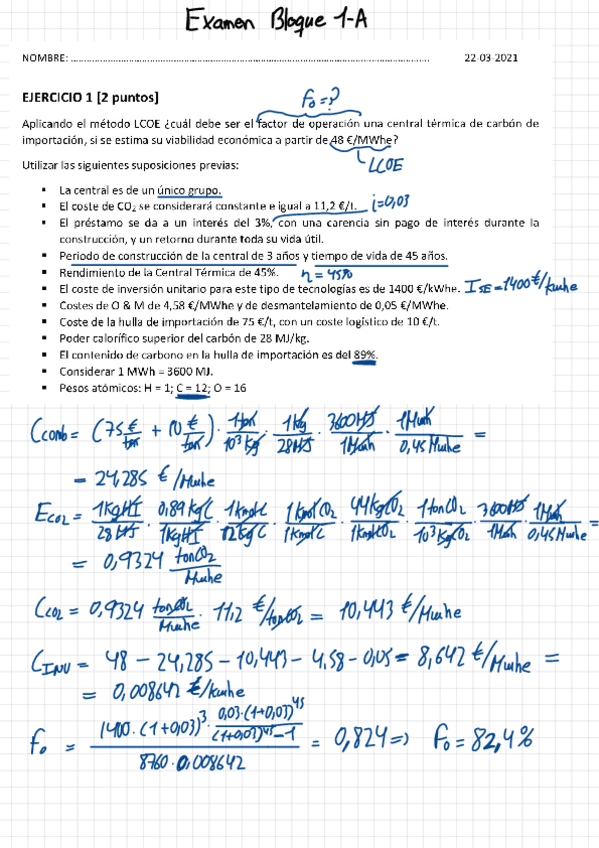 Examen Bloque 1-A
NOMBRE: ........................................................ 22-03-2021
EJERCICIO 1 [2 puntos]
f₀=?
Aplicando el método LCOE ¿cuál debe ser el factor de operación una central térmica de carbón de
importación, si se estima su viabilidad económica a partir de 48 €/MWhe?
LCOE
Utilizar las siguientes suposiciones previas:
▪ La central es de un único grupo.
▪ El coste de CO₂ se considerará constante e igual a 11,2 €/t. i=0,03
▪ El préstamo se da a un interés del 3%, con una carencia sin pago de interés durante la
construcción, y un retorno durante toda su vida útil.
▪ Periodo de construcción de la central de 3 años y tiempo de vida de 45 años.
▪ Rendimiento de la Central Térmica de 45%. η = 45%
▪ El coste de inversión unitario para este tipo de tecnologías es de 1400 €/kWhe. I_SE=1400€/kwhe
▪ Costes de O & M de 4,58 €/MWhe y de desmantelamiento de 0,05 €/MWhe.
▪ Coste de la hulla de importación de 75 €/t, con un coste logístico de 10 €/t.
▪ Poder calorífico superior del carbón de 28 MJ/kg.
▪ El contenido de carbono en la hulla de importación es del 89%.
▪ Considerar 1 MWh = 3600 MJ.
▪ Pesos atómicos: H = 1; C = 12; O = 16
Ccomb = (75 €/ton + 10 €/ton) · 1ton/10³kg · 1kg/28MJ · 3600MJ/1Mwh · 1Mwh/0,45Mwhe =
= 24,285 €/Mwhe
E_CO2 = 1kgHI/28MJ · 0,89kgC/1kgHI · 1kmolC/12kgC · 1kmolCO₂/1kmolC · 44kgCO₂/1kmolCO₂ · 1tonCO₂/10³kgCO₂ · 3600MJ/1Mwh · 1Mwh/0,45Mwhe =
= 0,9324 tonCO₂/Mwhe
C_CO2 = 0,9324 tonCO₂/Mwhe · 11,2 €/tonCO₂ = 10,443 €/Mwhe
C_INV = 48 – 24,285 – 10,443 – 4,58 – 0,05 = 8,642 €/Mwhe =
= 0,008642 €/kwhe
f₀ = (1400·(1+0,03)³ · 0,03·(1+0,03)⁴⁵/(1+0,03)⁴⁵–1) / (8760·0,008642) = 0,824 => f₀ = 82,4%